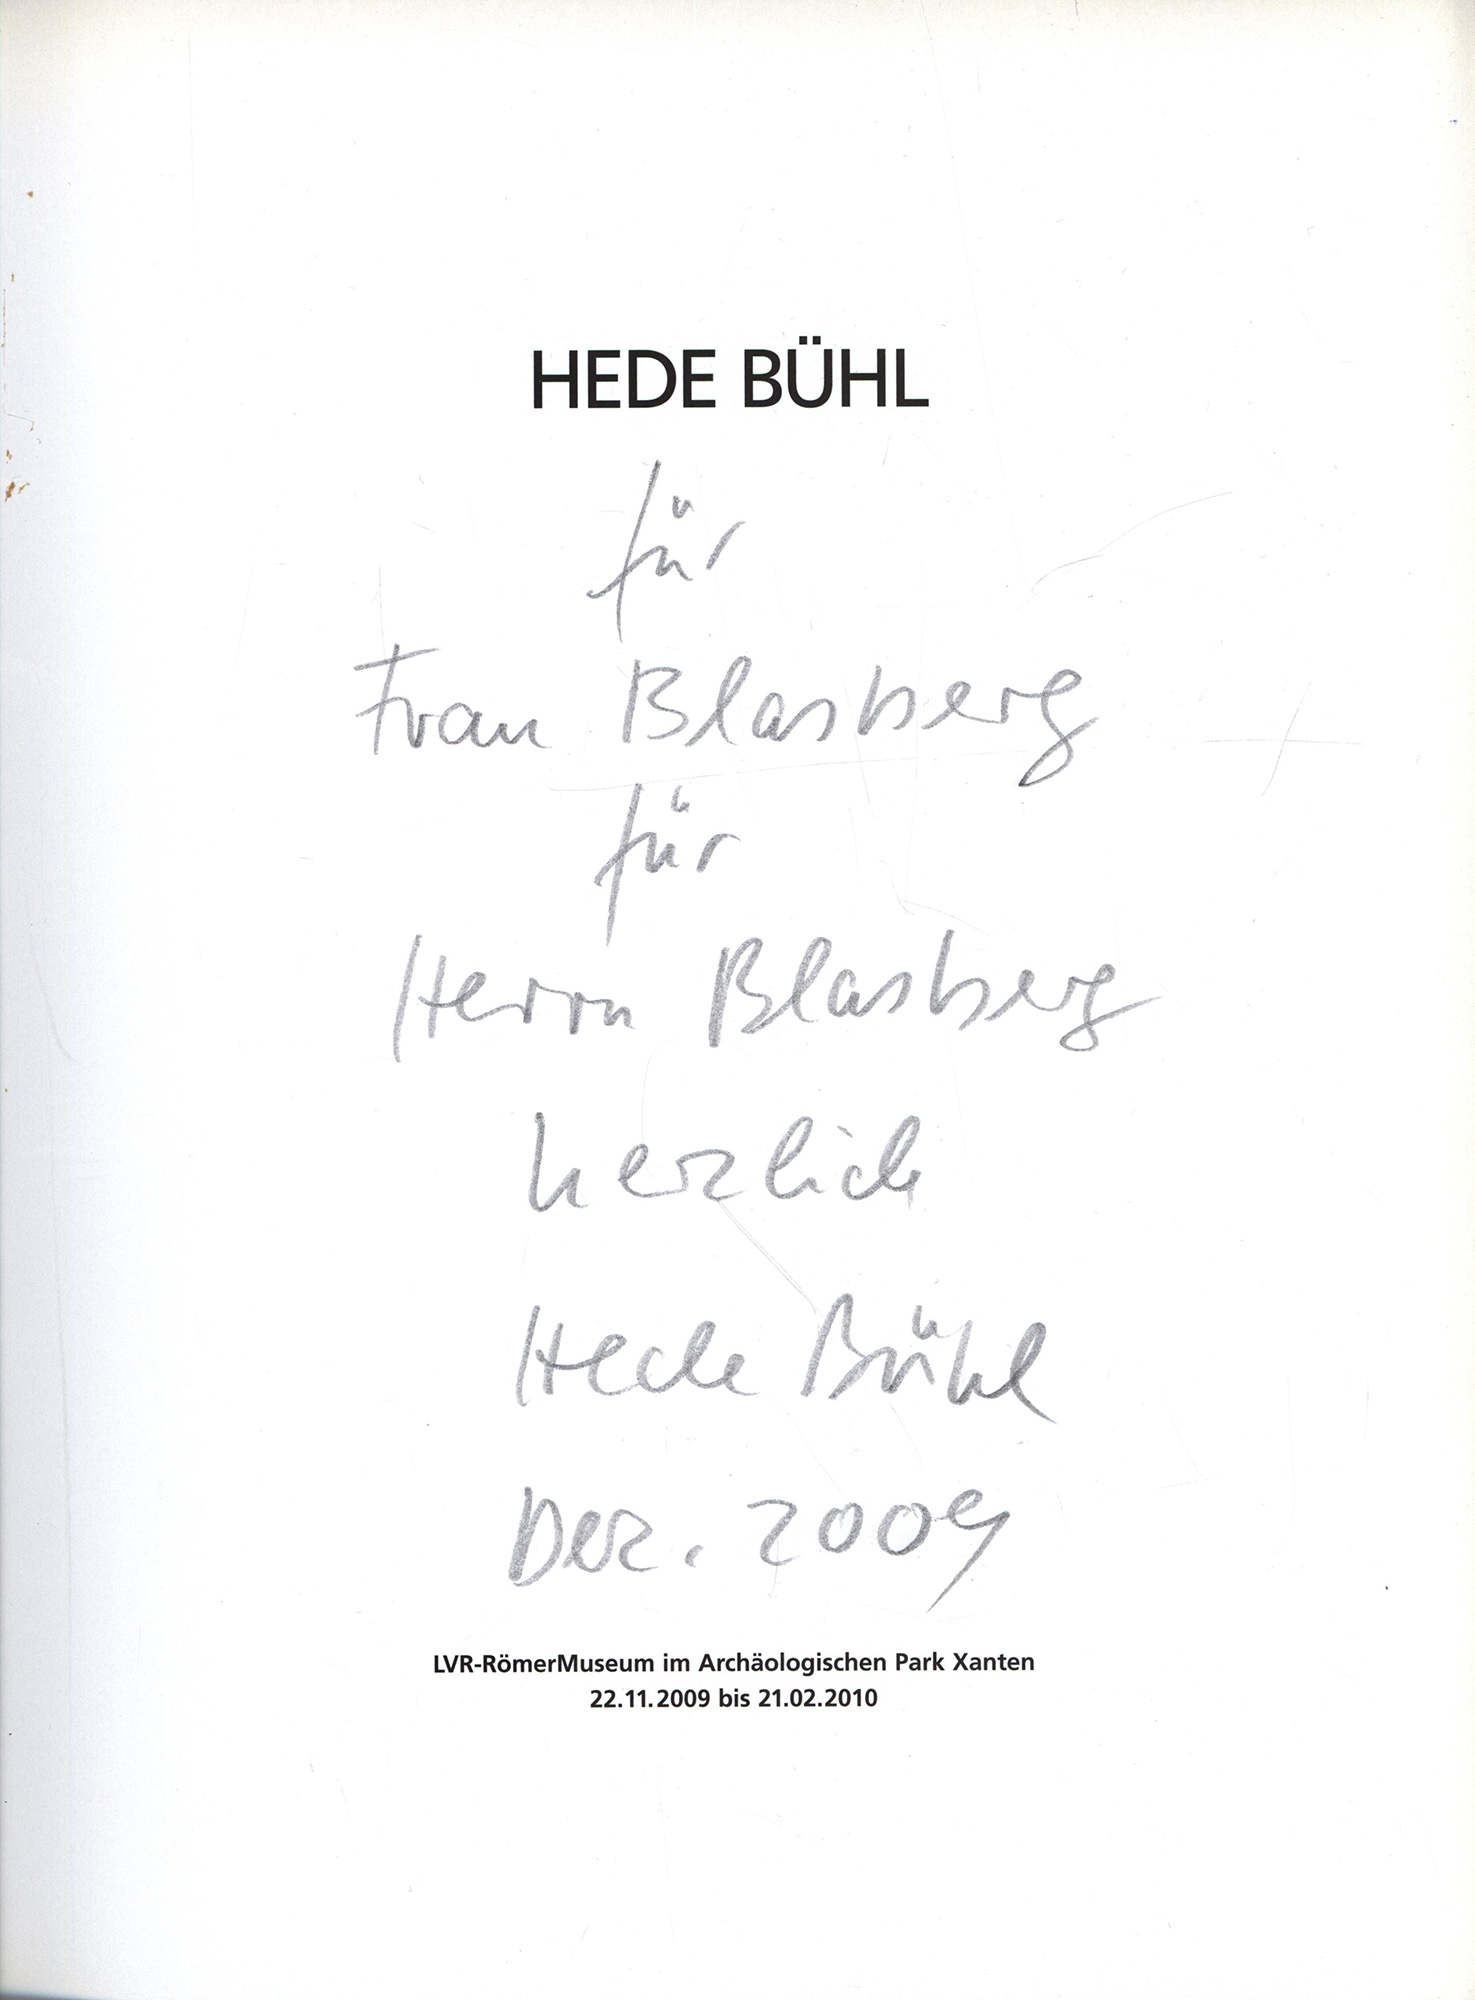 HEDE BÜHL
für
Frau Blasberg
für
Herrn Blasberg
herzlich
Hede Bühl
Dez. 2009
LVR-RömerMuseum im Archäologischen Park Xanten
22.11.2009 bis 21.02.2010